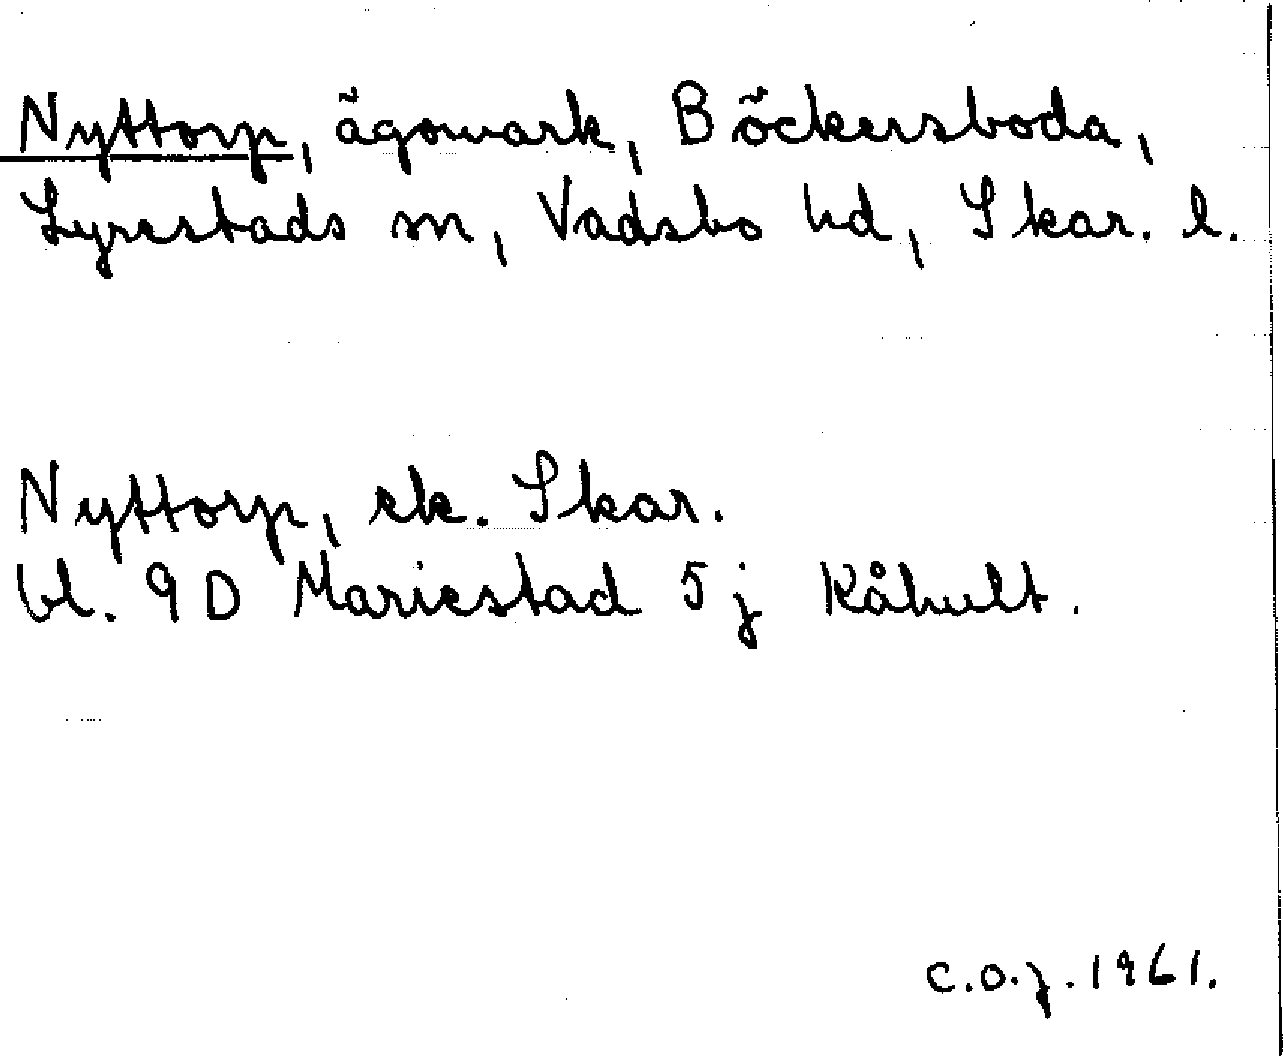 Nyttorp, ägomark, Böckersboda,
Lyrestads sn, Vadsbo hd, Skar. l.
Nyttorp, ek. Skar.
bl. 9D Mariestad 5j Kåhult.
C.O.J. 1961.